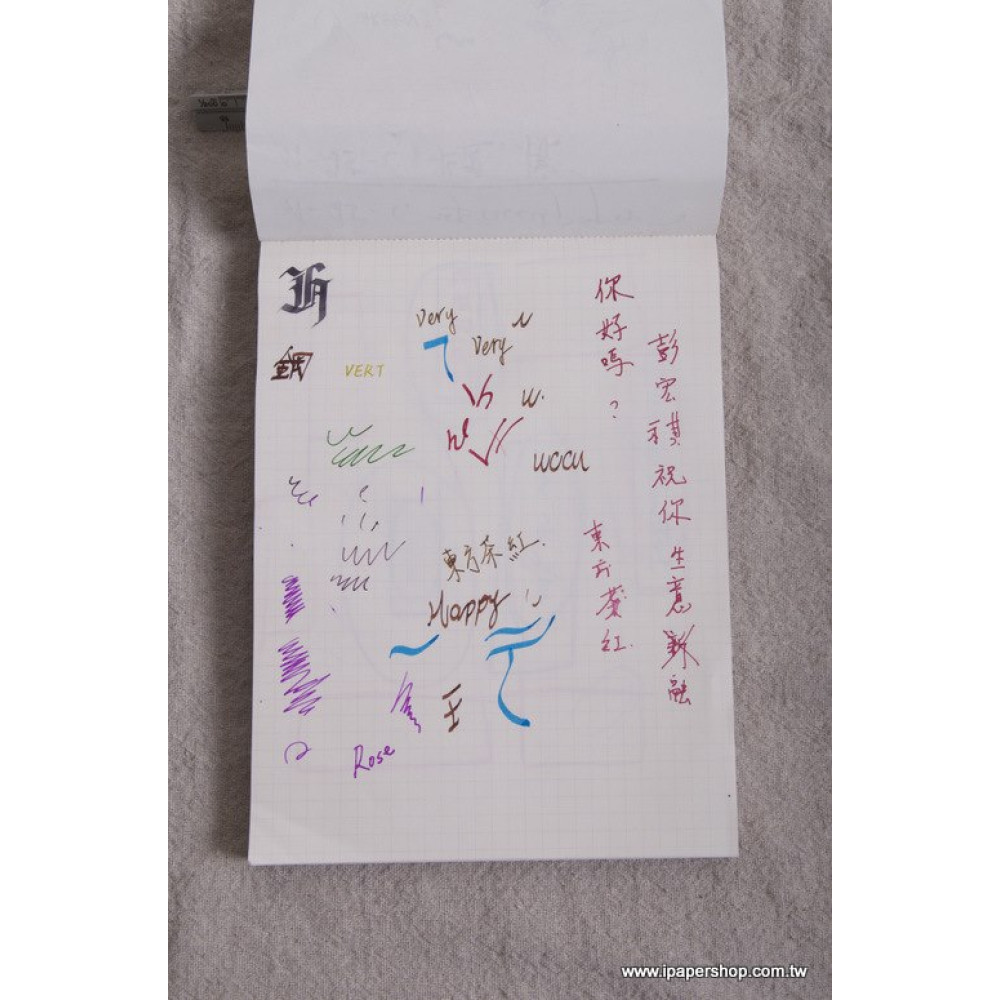 H
VERT
Very
Very
n
w.
woou
你好嗎？
彭宏祺祝你生意融
東方茶紅.
東方
紅.
Happy
王
Rose
www.ipapershop.com.tw